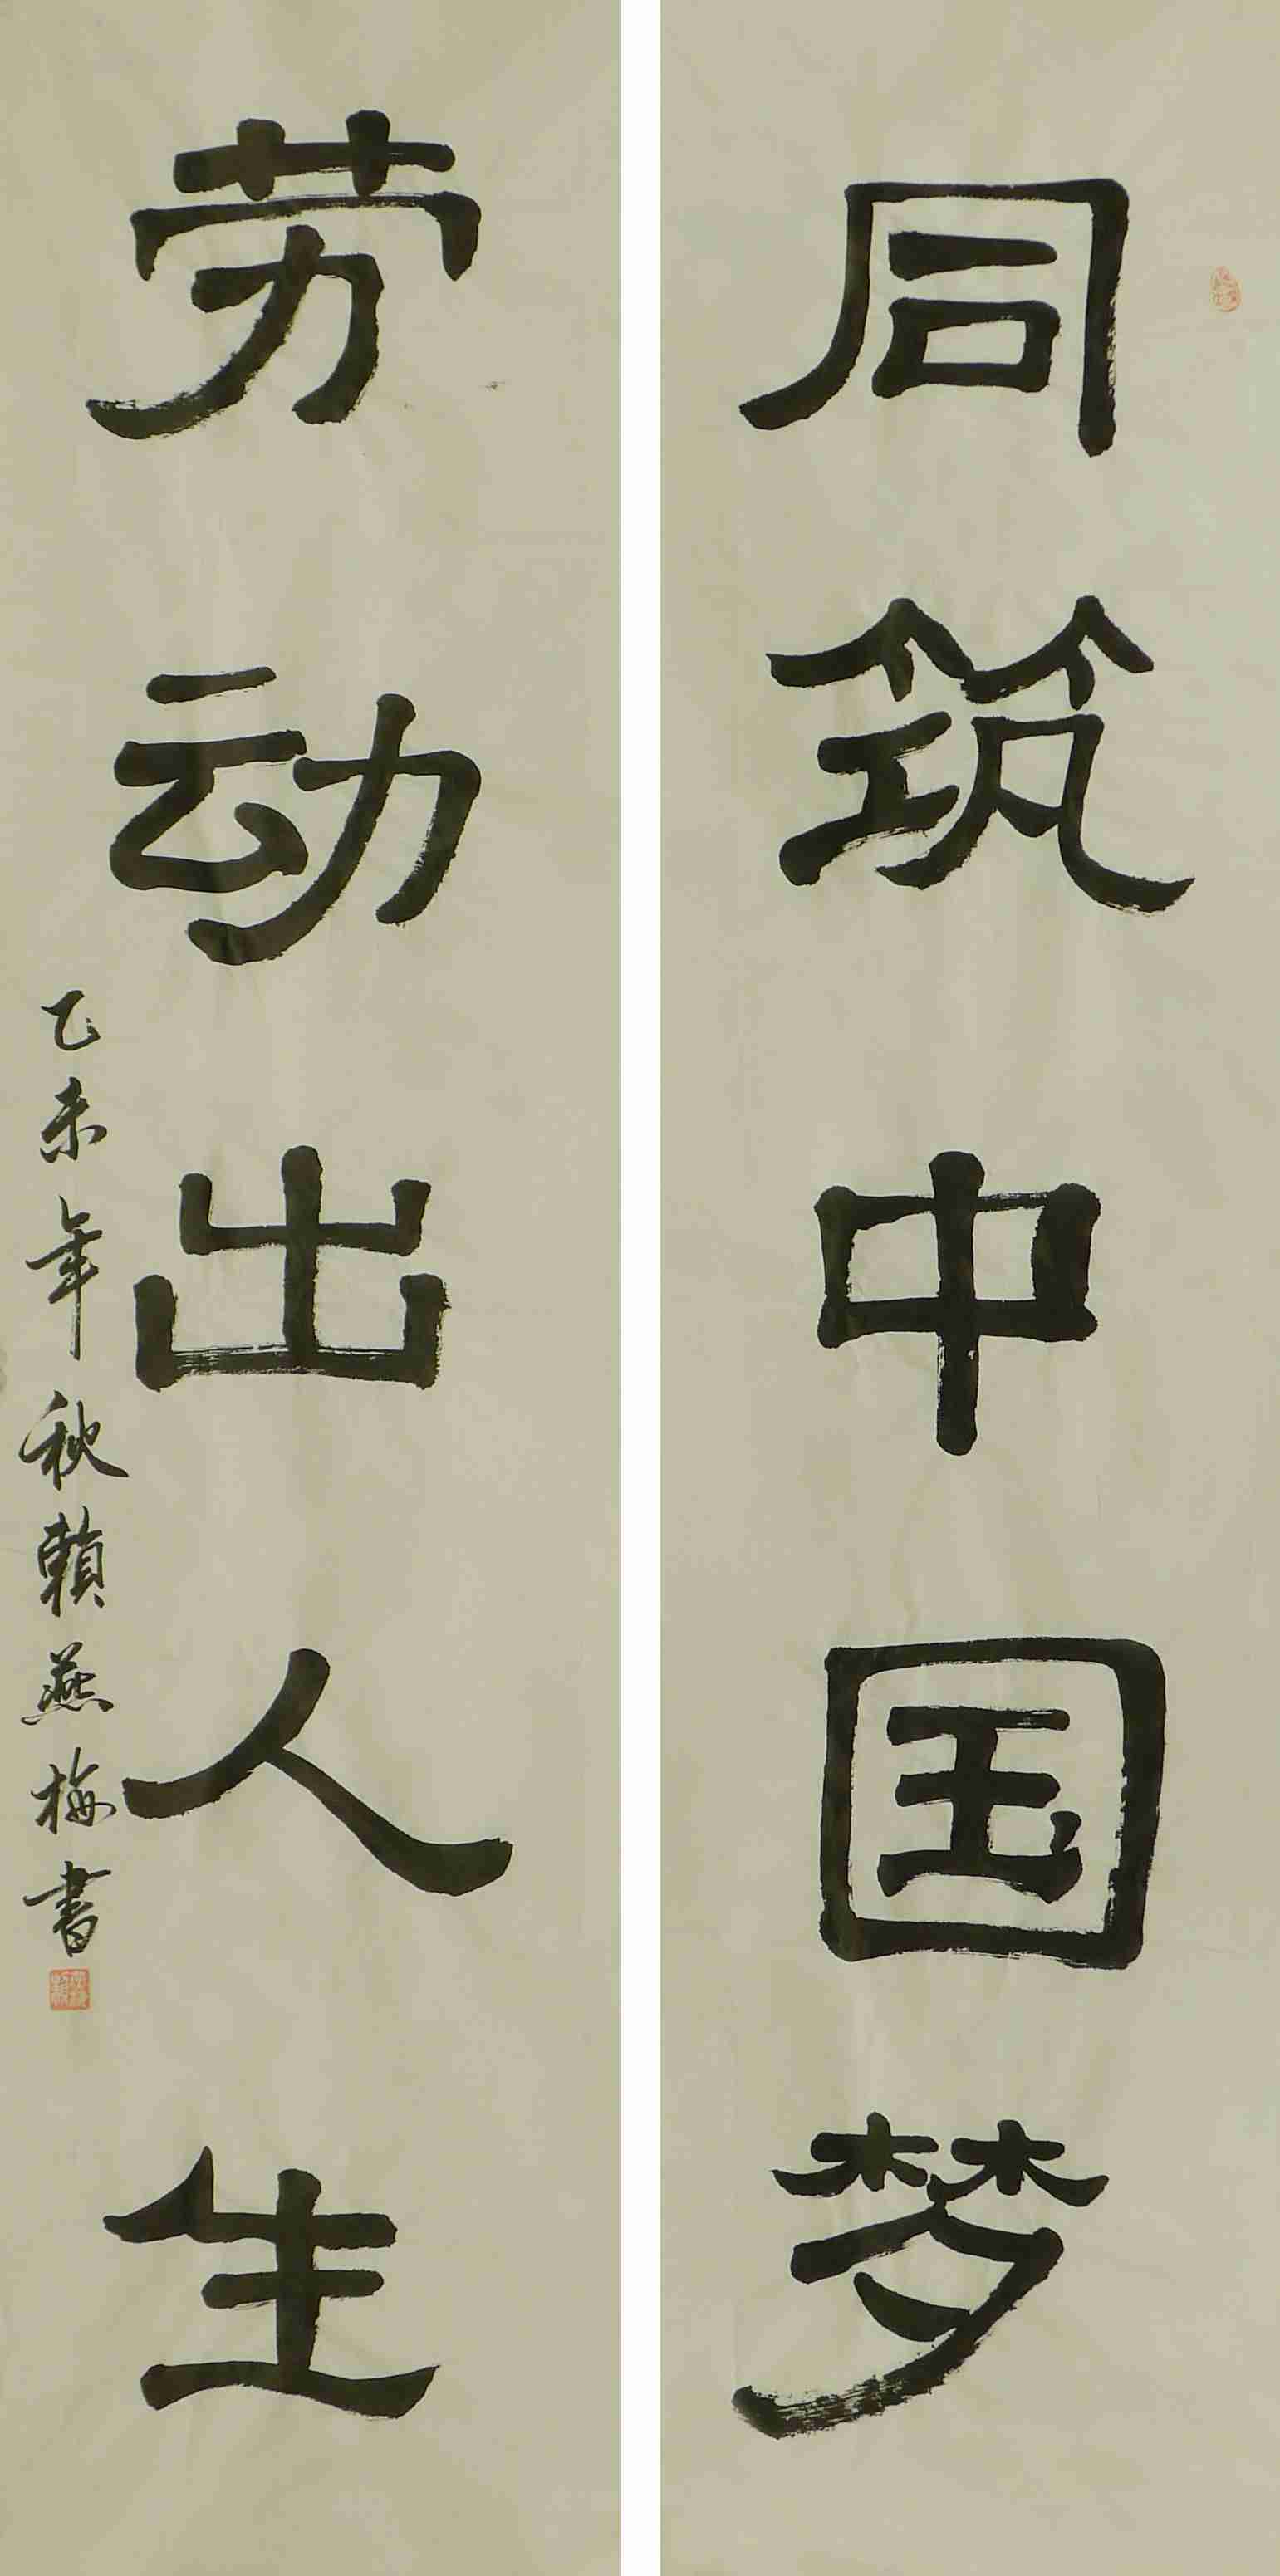 同筑中国梦
劳动出人生
乙未年秋賴燕梅書